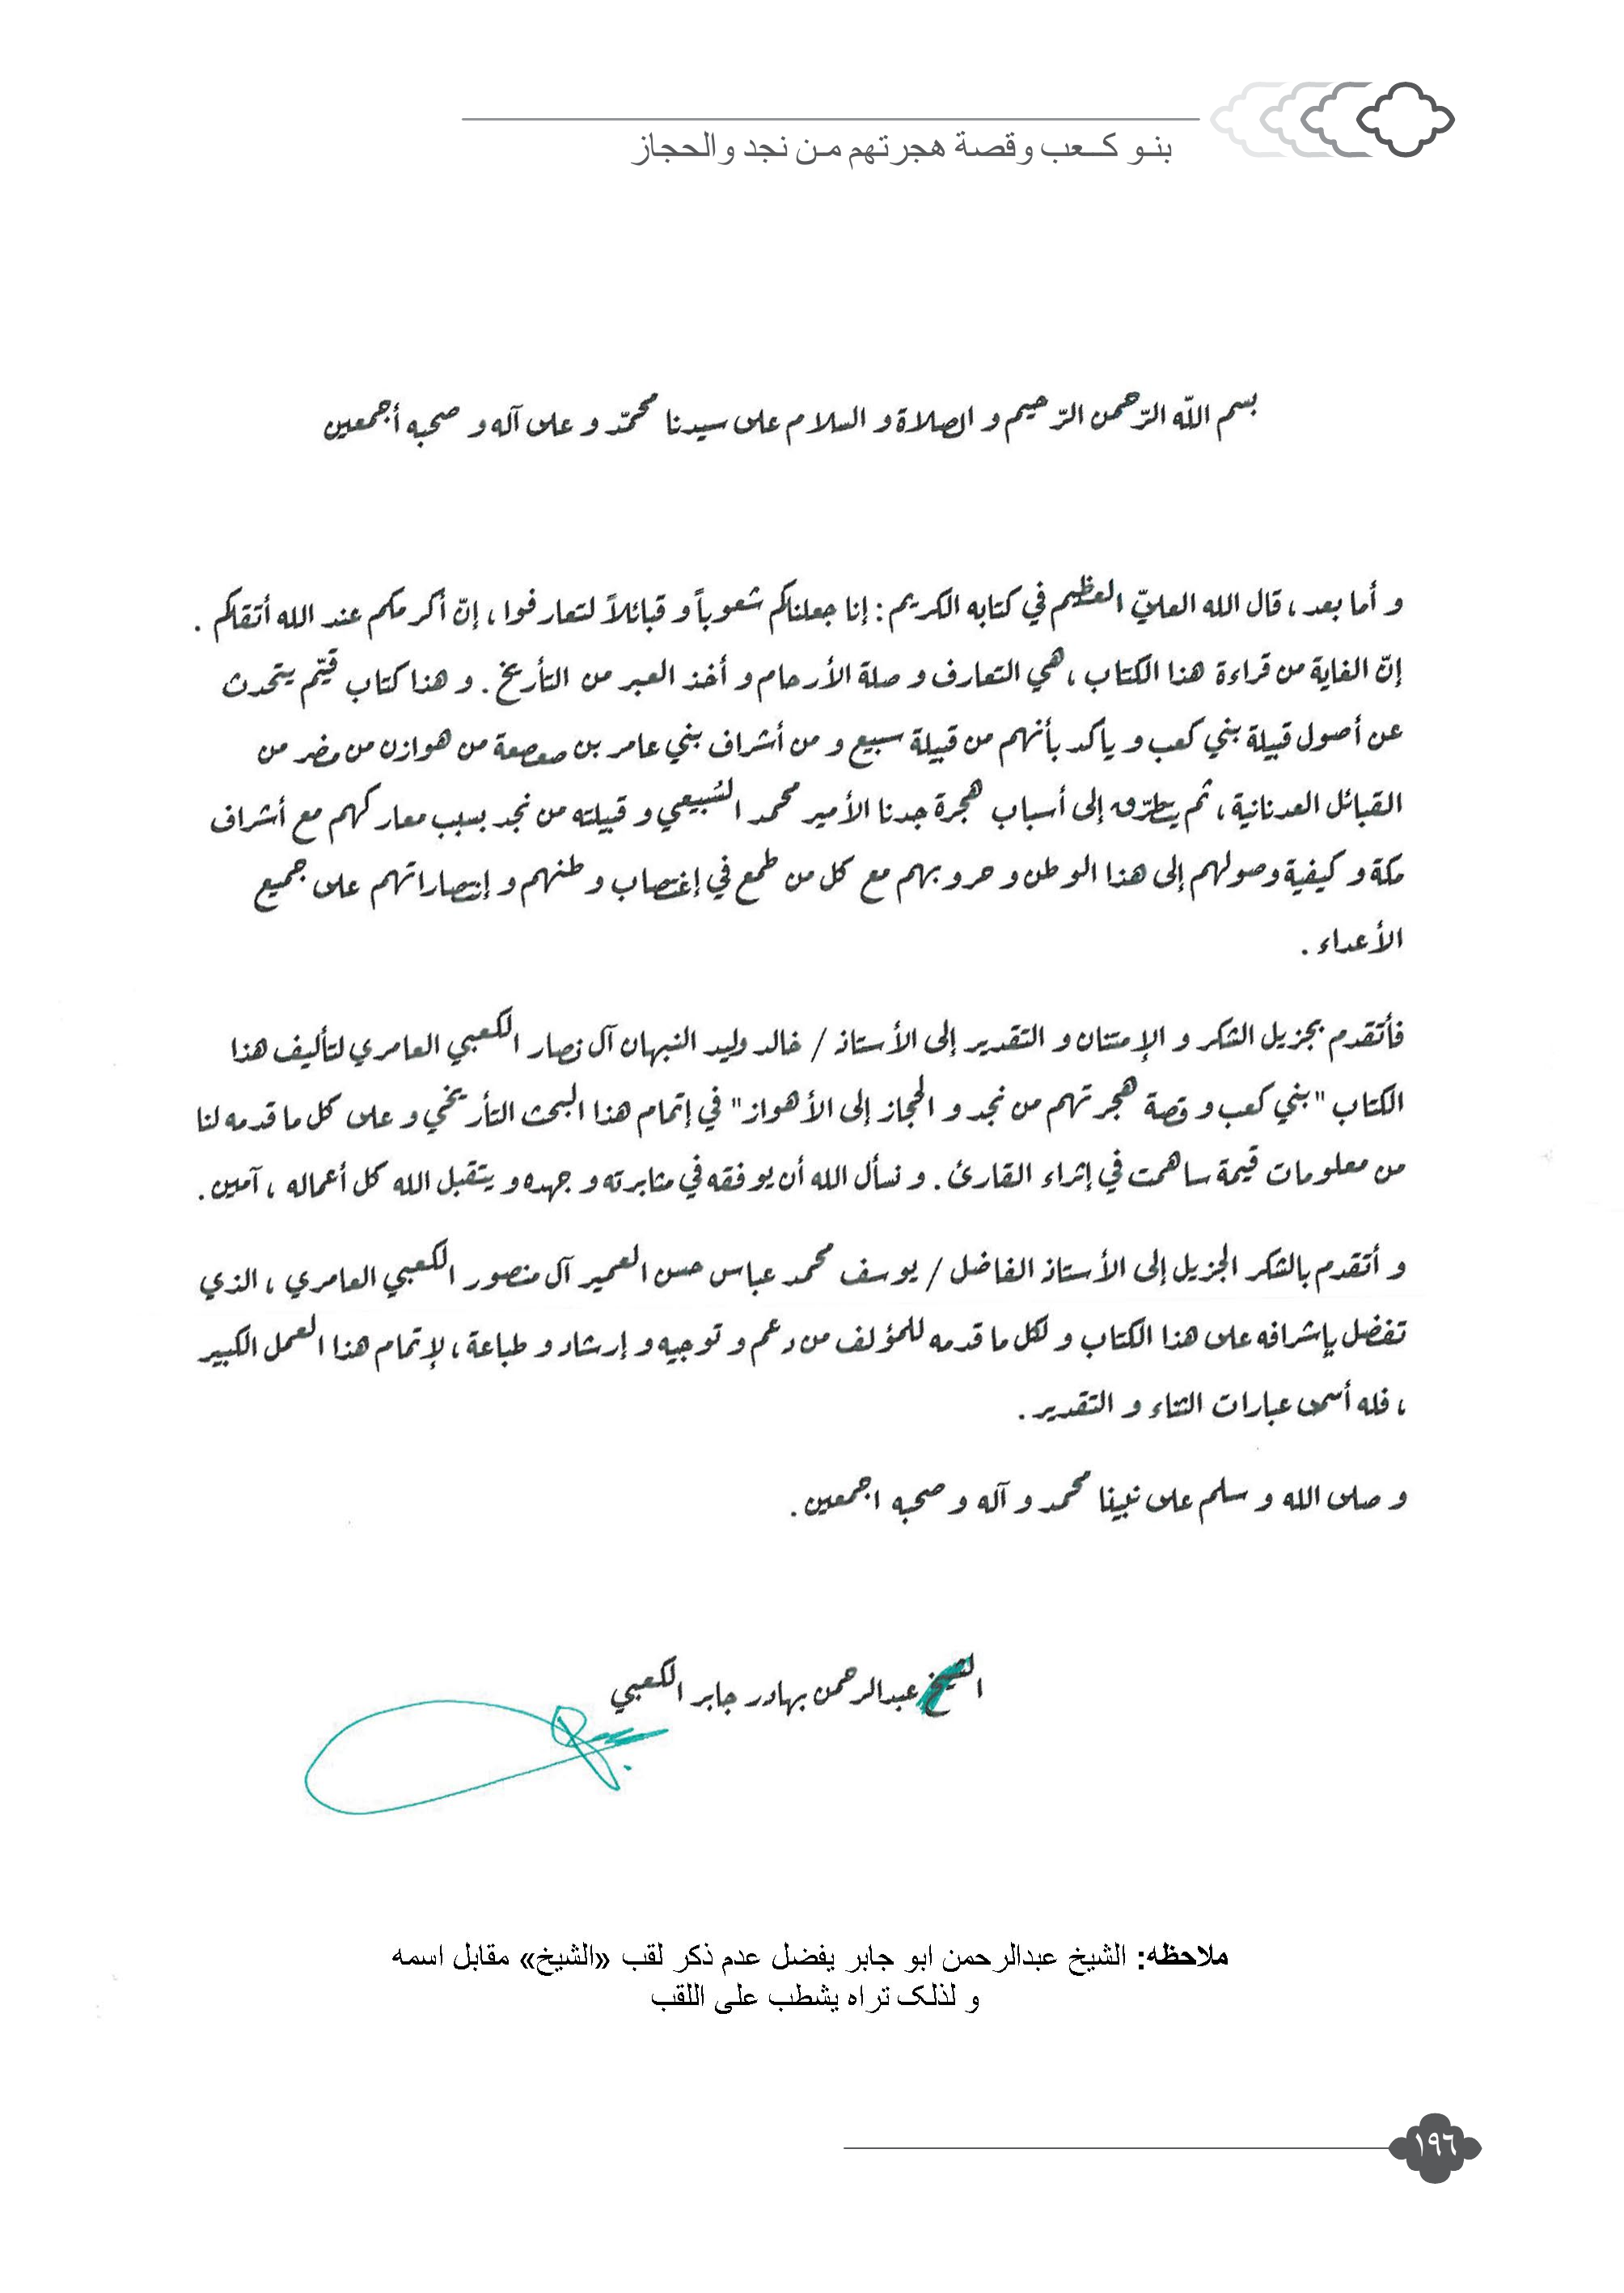 بنو كعب وقصة هجرتهم من نجد والحجاز
بسم اللّه الرّحمن الرّحيم و الصلاة و السلام على سيدنا محمّد و على آله و صحبه أجمعين
و أما بعد ، قال الله العليّ العظيم في كتابه الكريم : إنا جعلناكم شعوباً و قبائلاً لتعارفوا ، إنّ أكرمكم عند الله أتقاكم .
إنّ الغاية من قراءة هذا الكتاب ، هي التعارف و صلة الأرحام و أخذ العبر من التأريخ . و هذا كتاب قيّم يتحدث
عن أصول قبيلة بني كعب و ياكد بأنهم من قبيلة سبيع و من أشراف بني عامر بن صعصعة من هوازن من مضر من
القبائل العدنانية ، ثم يتطرّق إلى أسباب هجرة جدنا الأمير محمد السُبيعي و قبيلته من نجد بسبب معاركهم مع أشراف
مكة و كيفية وصولهم إلى هذا الوطن و حروبهم مع كل من طمع في إغتصاب وطنهم و إنتصاراتهم على جميع
الأعداء .
فأتقدم بجزيل الشكر و الإمتنان و التقدير إلى الأستاذ / خالد وليد النبهان آل نصار الكعبي العامري لتأليف هذا
الكتاب "بني كعب و قصة هجرتهم من نجد و الحجاز إلى الأهواز" في إتمام هذا البحث التأريخي و على كل ما قدمه لنا
من معلومات قيمة ساهمت في إثراء القارئ . و نسأل الله أن يوفقه في مثابرته و جهده و يتقبل الله كل أعماله ، آمين .
و أتقدم بالشكر الجزيل إلى الأستاذ الفاضل / يوسف محمد عباس حسن العمير آل منصور الكعبي العامري ، الذي
تفضل بإشرافه على هذا الكتاب و لكل ما قدمه للمؤلف من دعم و توجيه و إرشاد و طباعة ، لإتمام هذا العمل الكبير
، فله أسمى عبارات الثناء و التقدير .
و صلى الله و سلم على نبينا محمد و آله و صحبه اجمعين .
الشيخ عبدالرحمن بهادر جابر الكعبي
ملاحظه: الشيخ عبدالرحمن ابو جابر يفضل عدم ذكر لقب «الشيخ» مقابل اسمه
و لذلک تراه يشطب على اللقب
١٩٦